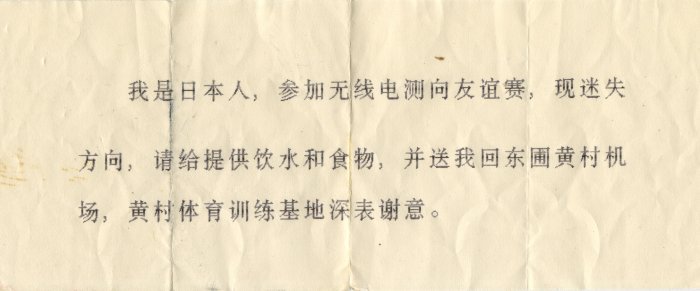 我是日本人，参加无线电测向友谊赛，现迷失
方向，请给提供饮水和食物，并送我回东圃黄村机
场，黄村体育训练基地深表谢意。